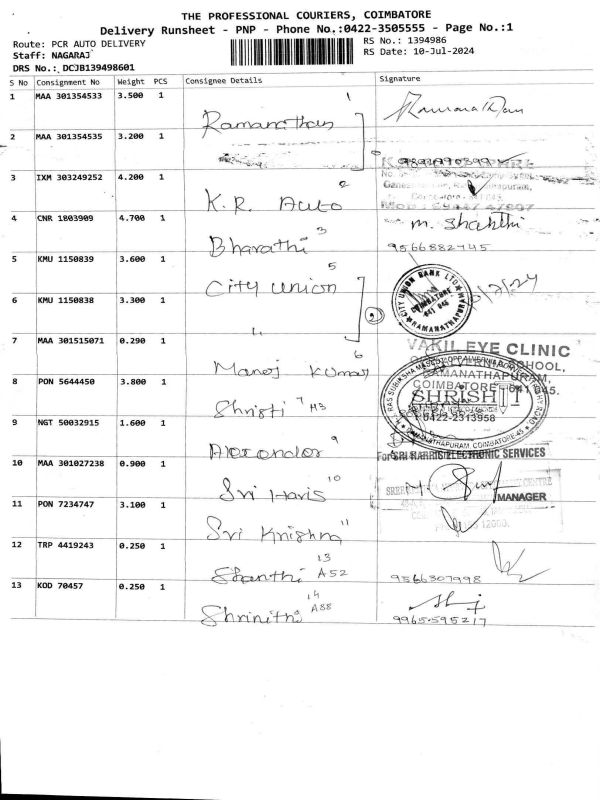 THE PROFESSIONAL COURIERS, COIMBATORE
Delivery Runsheet - PNP - Phone No.:0422-3505555 - Page No.:1
Route: PCR AUTO DELIVERY
RS No.: 1394986
Staff: NAGARAJ
RS Date: 10-Jul-2024
DRS No.: DCJB139498601
S No Consignment No Weight PCS Consignee Details Signature
1 MAA 301354533 3.500 1 Ramanathan 1 Ramanathan
2 MAA 301354535 3.200 1
3 IXM 303249252 4.200 1 K.R. Auto 2
4 CNR 1803909 4.700 1 Bharathi 3 m. Shakthi
9566882745
5 KMU 1150839 3.600 1 City union 5
CITY UNION BANK LTD
COIMBATORE
641 045
RAMANATHAPURAM
6 KMU 1150838 3.300 1 "
7 MAA 301515071 0.290 1 Manoj Kumar 6
VAKIL EYE CLINIC
RAMANATHAPURAM,
COIMBATORE - 641 045.
8 PON 5644450 3.800 1 Shristi 7 H3
SHRISHTI
0422-2313958
RAMANATHAPURAM, COIMBATORE-45
9 NGT 50032915 1.600 1 Alexander 9
For SRI HARRIS ELECTRONIC SERVICES
10 MAA 301027238 0.900 1 Sri Haris 10
MANAGER
11 PON 7234747 3.100 1 Sri Krishna 11
12 TRP 4419243 0.250 1 Shanthi A52 13
9566307998
13 KOD 70457 0.250 1 Shrinithi A88 14
9965-595217